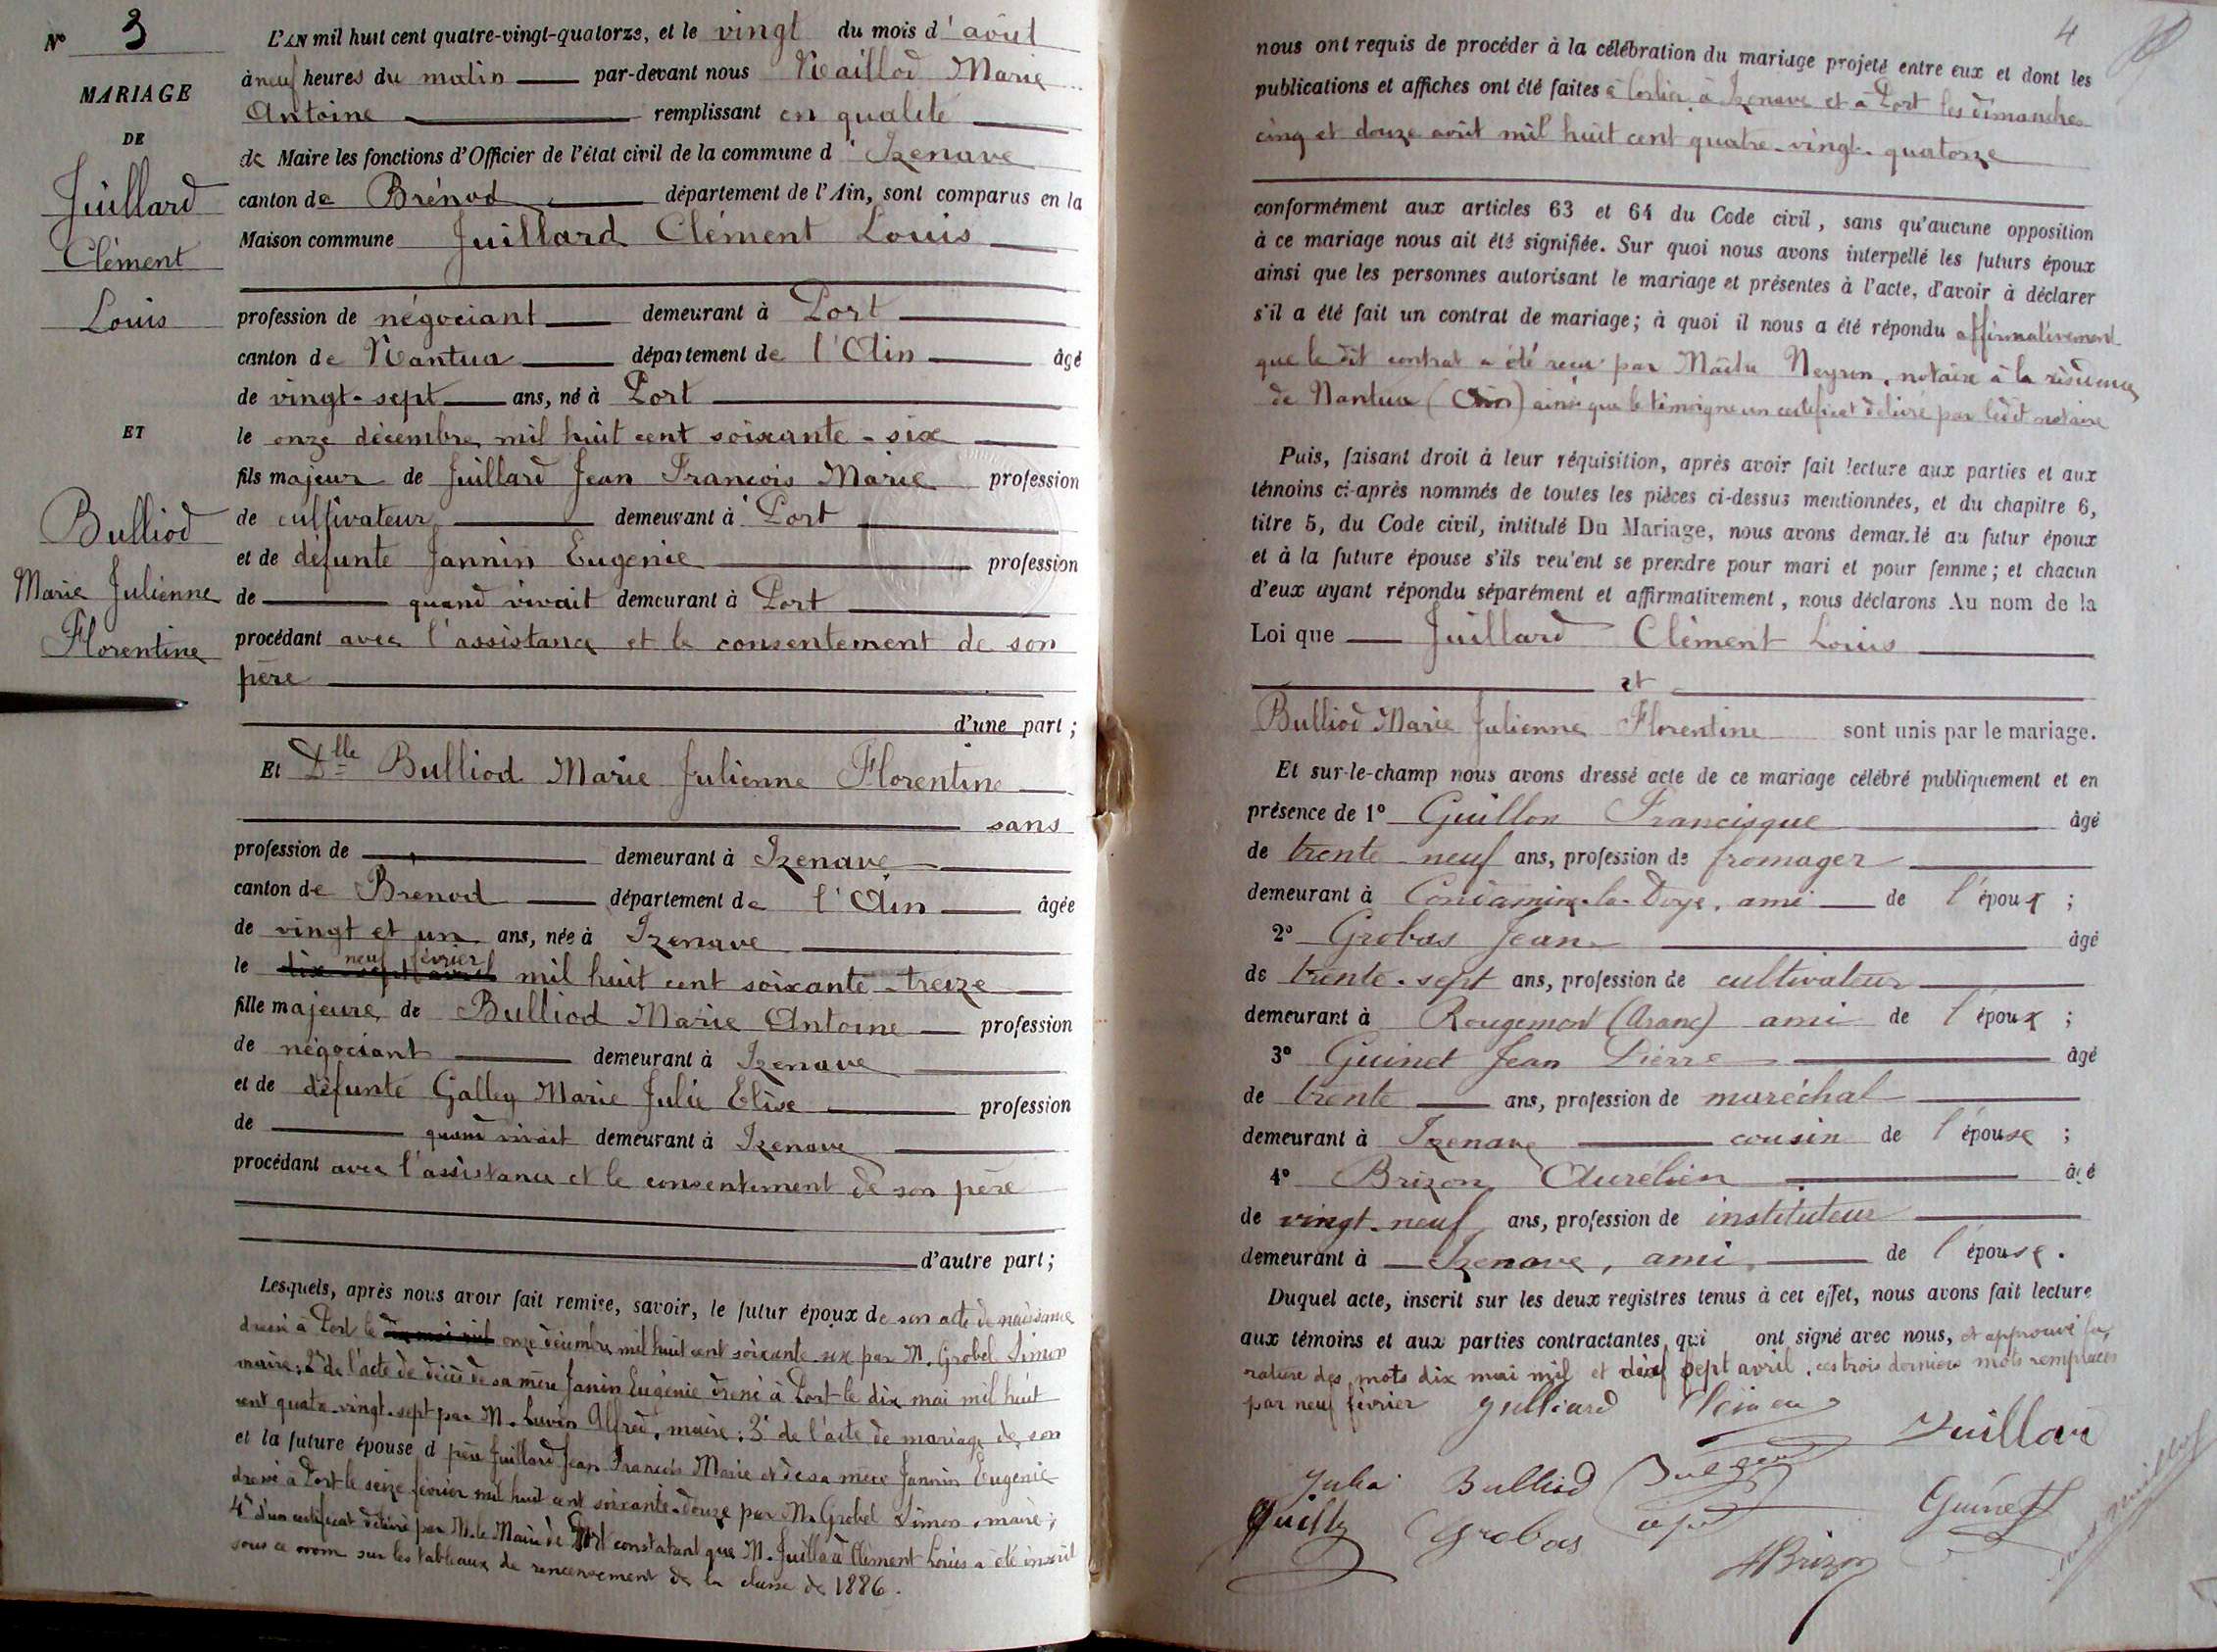 N° 3
MARIAGE
DE
Juillard
Clément
Louis
ET
Bulliod
Marie Julienne
Florentine
L'AN mil huit cent quatre-vingt-quatorze, et le vingt du mois d'août
à neuf heures du matin par-devant nous Maillod Marie
Antoine remplissant en qualité
de Maire les fonctions d'Officier de l'état civil de la commune d'Izenave
canton de Brénod département de l'Ain, sont comparus en la
Maison commune Juillard Clément Louis
profession de négociant demeurant à Port
canton de Nantua département de l'Ain âgé
de vingt-sept ans, né à Port
le onze décembre mil huit cent soixante-six
fils majeur de Juillard Jean François Marie profession
de cultivateur demeurant à Port
et de défunte Jannin Eugénie profession
de quand vivait demeurant à Port
procédant avec l'assistance et le consentement de son
père
d'une part ;
Et Dlle Bulliod Marie Julienne Florentine
sans
profession de demeurant à Izenave
canton de Brenod département de l'Ain âgée
de vingt et un ans, née à Izenave
neuf février
le dix sept avril mil huit cent soixante-treize
fille majeure de Bulliod Marie Antoine profession
de négociant demeurant à Izenave
et de défunte Galley Marie Julie Elise profession
de quand vivait demeurant à Izenave
procédant avec l'assistance et le consentement de son père
d'autre part ;
Lesquels, après nous avoir fait remise, savoir, le futur époux de son acte de naissance
dressé à Port le dix mai mil onze décembre mil huit cent soixante six par M. Grobel Simon
maire ; 2° de l'acte de décès de sa mère Janin Eugénie dressé à Port le dix mai mil huit
cent quatre-vingt-sept par M. Alfred, maire ; 3° de l'acte de mariage de son
et la future épouse d père Juillard Jean François Marie et de sa mère Jannin Eugénie
dressé à Port le seize février mil huit cent soixante-douze par M. Grobel Simon, maire ;
4° d'un certificat délivré par M. le Maire de Port constatant que M. Juillard Clément Louis a été inscrit
sous ce nom sur les tableaux de recensement de la classe de 1886.
4
nous ont requis de procéder à la célébration du mariage projeté entre eux et dont les
publications et affiches ont été faites à Corlier, à Izenave et à Port les dimanches
cinq et douze août mil huit cent quatre-vingt-quatorze
conformément aux articles 63 et 64 du Code civil, sans qu'aucune opposition
à ce mariage nous ait été signifiée. Sur quoi nous avons interpellé les futurs époux
ainsi que les personnes autorisant le mariage et présentes à l'acte, d'avoir à déclarer
s'il a été fait un contrat de mariage ; à quoi il nous a été répondu affirmativement
que le dit contrat a été reçu par Maître Neyron, notaire à la résidence
de Nantua (Ain) ainsi que le témoigne un certificat délivré par ledit notaire
Puis, faisant droit à leur réquisition, après avoir fait lecture aux parties et aux
témoins ci-après nommés de toutes les pièces ci-dessus mentionnées, et du chapitre 6,
titre 5, du Code civil, intitulé Du Mariage, nous avons demandé au futur époux
et à la future épouse s'ils veulent se prendre pour mari et pour femme ; et chacun
d'eux ayant répondu séparément et affirmativement, nous déclarons Au nom de la
Loi que Juillard Clément Louis
et
Bulliod Marie Julienne Florentine sont unis par le mariage.
Et sur-le-champ nous avons dressé acte de ce mariage célébré publiquement et en
présence de 1° Guillon Francisque âgé
de trente-neuf ans, profession de fromager
demeurant à Condamine-la-Doye, ami de l'époux ;
2° Grobas Jean âgé
de trente-sept ans, profession de cultivateur
demeurant à Rougemont (Aranc) ami de l'époux ;
3° Guinet Jean Pierre âgé
de trente ans, profession de maréchal
demeurant à Izenave cousin de l'épouse ;
4° Brizon Aurélien âgé
de vingt-neuf ans, profession de instituteur
demeurant à Izenave, ami de l'épouse.
Duquel acte, inscrit sur les deux registres tenus à cet effet, nous avons fait lecture
aux témoins et aux parties contractantes qui ont signé avec nous, et approuvé la
rature des mots dix mai mil et dix sept avril, ces trois derniers mots remplacés
par neuf février Juilliard Clément
Juillard
Julia Bulliod
Guinet
Grobas
ABrizon